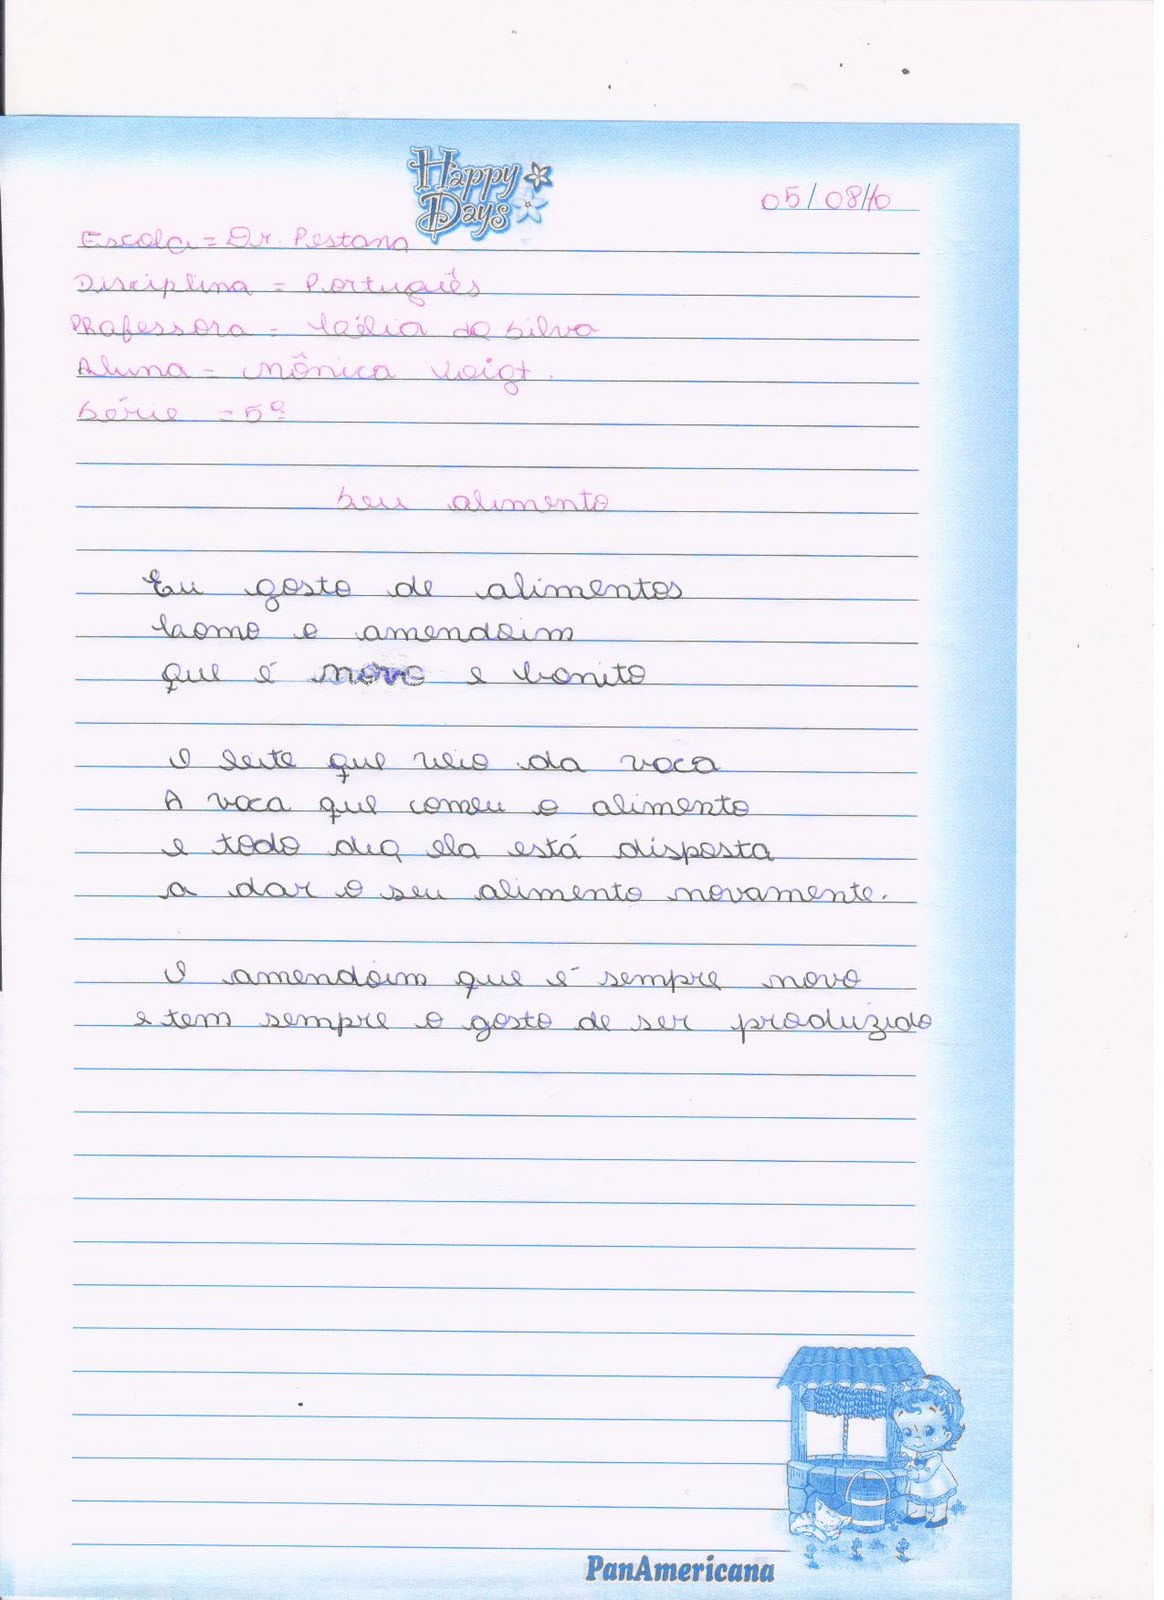 Happy
Days
05/08/10
Escola = Dr. Pestana
Disciplina = Português
Professora = Célia da Silva
Aluna = Mônica Voigt.
Série = 5ª
Seu alimento
Eu gosto de alimentos
Como o amendoim
que é novo e bonito
O leite que veio da vaca
A vaca que comeu o alimento
e todo dia ela está disposta
a dar o seu alimento novamente.
O amendoim que é sempre novo
e tem sempre o gosto de ser produzido
PanAmericana